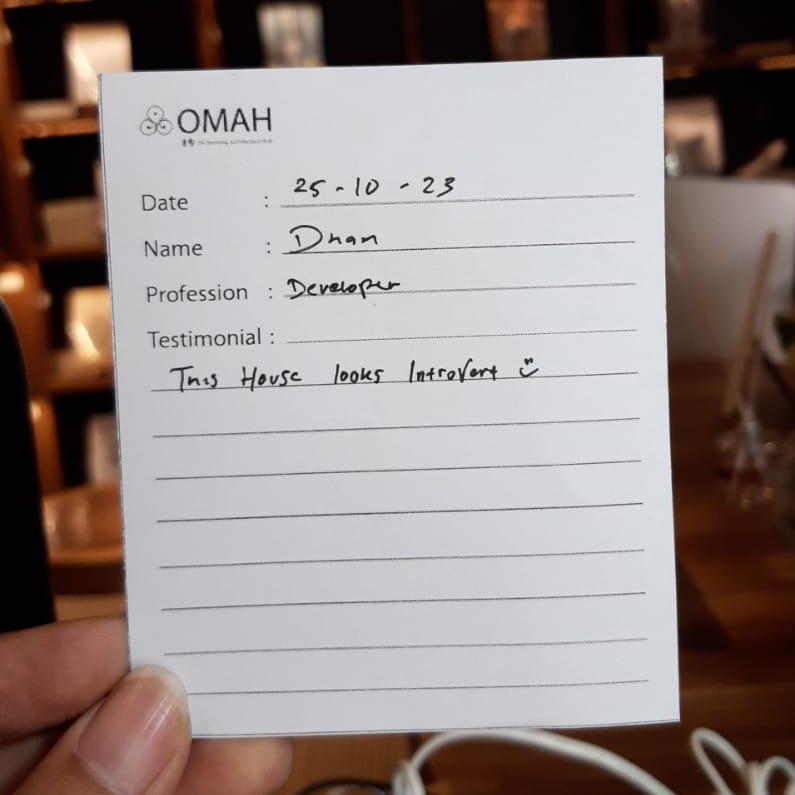 OMAH
Date : 25-10-23
Name : Dhan
Profession : Developer
Testimonial :
This House looks Introvert